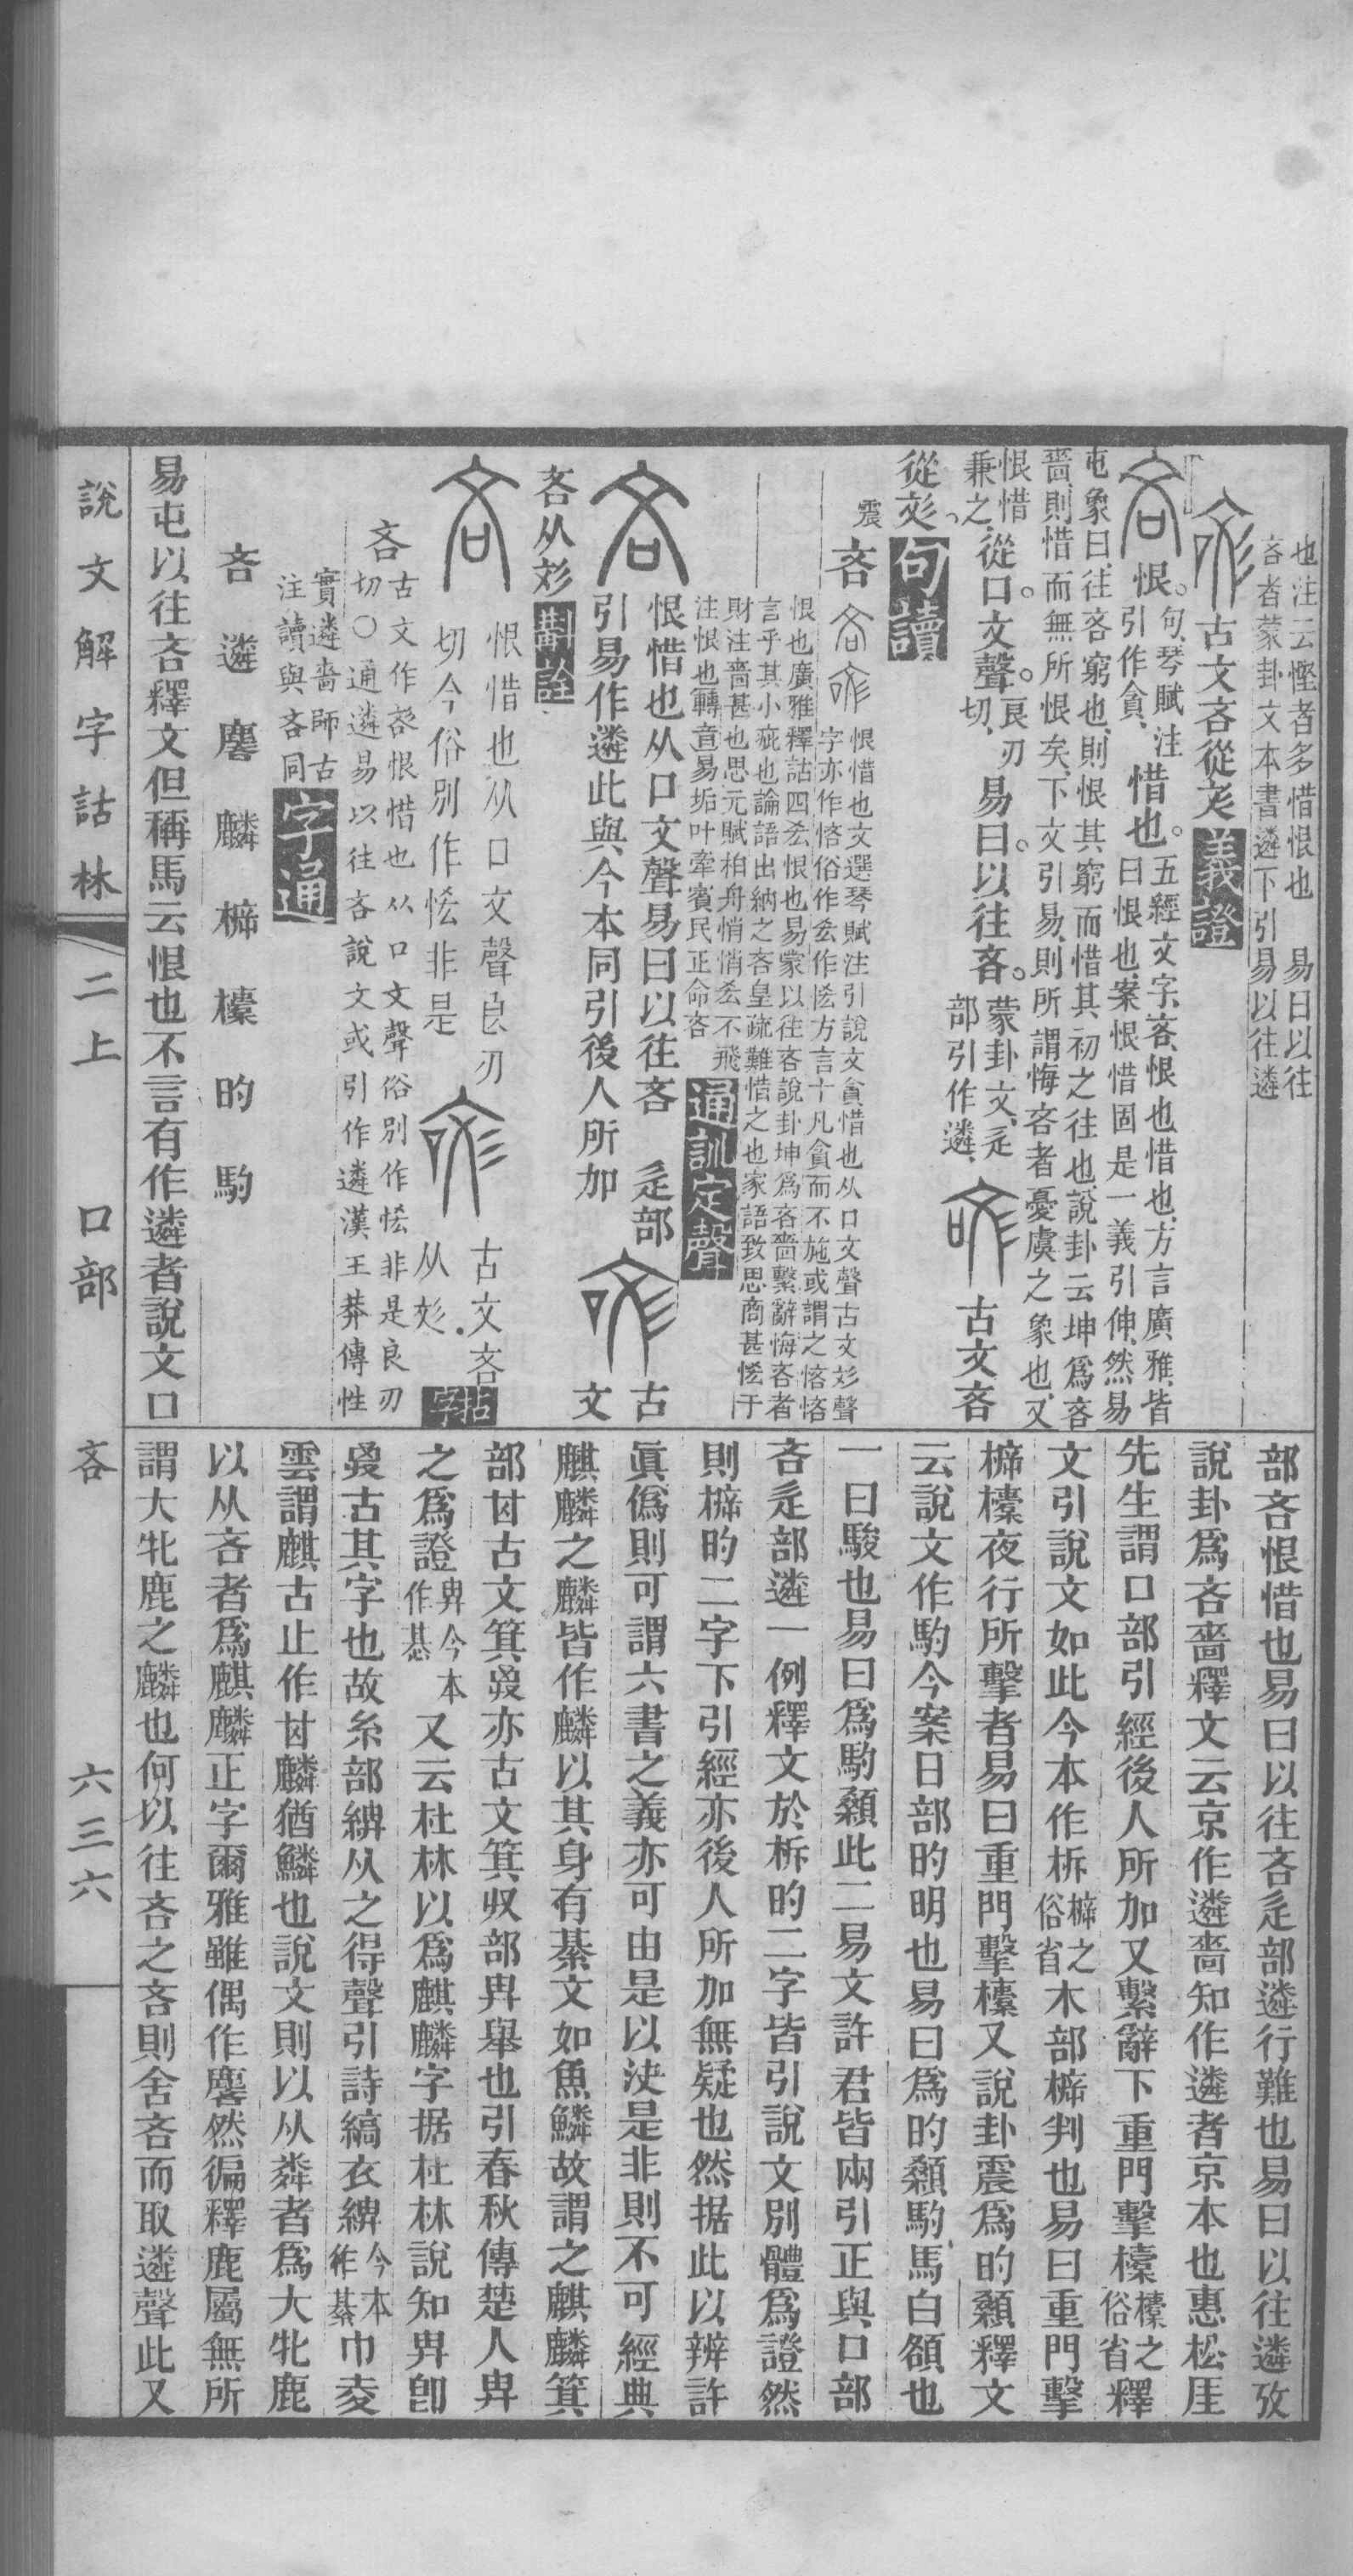 也注云慳者多惜恨也　易曰以往
吝者蒙卦文本書遴下引易以往遴
古文吝從彣
義證
恨。
句琴賦注
引作貪、
惜也。
五經文字吝恨也惜也方言廣雅皆
曰恨也案恨惜固是一義引伸然易
屯象曰往吝窮也則恨其窮而惜其初之往也說卦云坤爲吝
嗇則惜而無所恨矣下文引易則所謂悔吝者憂虞之象也又
恨惜
兼之、
從口。文聲。
良刃
切、
易曰。以往吝。
蒙卦文辵
部引作遴、
古文吝
從彣、
句讀
震
吝
恨惜也文選琴賦注引說文貪惜也从口文聲古文彣聲
字亦作悋俗作𠫤作恡方言十凡貪而不施或謂之悋悋
恨也廣雅釋詁四𠫤恨也易蒙以往吝說卦坤爲吝嗇繫辭悔吝者
言乎其小疵也論語出納之吝皇疏難惜之也家語致思商甚恡于
財注嗇甚也思元賦柏舟悄悄𠫤不飛
注恨也轉音易垢叶牽賓民正命吝
通訓定聲
恨惜也从口文聲易曰以往吝　辵部
引易作遴此與今本同引後人所加
古
文
吝从彣
斠詮
恨惜也从口文聲良刃
切今俗別作恡非是
古文吝
从彣.
拈字
吝
古文作㖁恨惜也从口文聲俗別作恡非是良刃
切〇通遴易以往吝說文或引作遴漢王莽傳性
實遴嗇師古
注讀與吝同
字通
吝　遴　麐　麟　㯕　㯱　旳　馰
易屯以往吝釋文但稱馬云恨也不言有作遴者說文口
部吝恨惜也易曰以往吝辵部遴行難也易曰以往遴攷
說卦爲吝嗇釋文云京作遴嗇知作遴者京本也惠松厓
先生謂口部引經後人所加又繫辭下重門擊㯱
㯱之
俗省
釋
文引說文如此今本作柝
㯕之
俗省
木部㯕判也易曰重門擊
㯕㯱夜行所擊者易曰重門擊㯱又說卦震爲旳顙釋文
云說文作馰今案日部旳明也易曰爲旳顙馰馬白頟也
一曰駿也易曰爲馰顙此二易文許君皆兩引正與口部
吝辵部遴一例釋文於柝旳二字皆引說文別體爲證然
則㯕旳二字下引經亦後人所加無疑也然据此以辨許
眞僞則可謂六書之義亦可由是以決是非則不可經典
麒麟之麟皆作麟以其身有綦文如魚鱗故謂之麒麟箕
部𠀠古文箕𠔛亦古文箕収部㠱舉也引春秋傳楚人㠱
之爲證
㠱今本
作惎
又云杜林以爲麒麟字据杜林說知㠱卽
𠔛古其字也故糸部綥从之得聲引詩縞衣綥
今本
作綦
巾夌
雲謂麒古止作𠀠麟猶鱗也說文則以从粦者爲大牝鹿
以从吝者爲麒麟正字爾雅雖偶作麐然徧釋鹿屬無所
謂大牝鹿之麟也何以往吝之吝則舍吝而取遴聲此又
說文解字詁林　二上　口部　吝　六三六